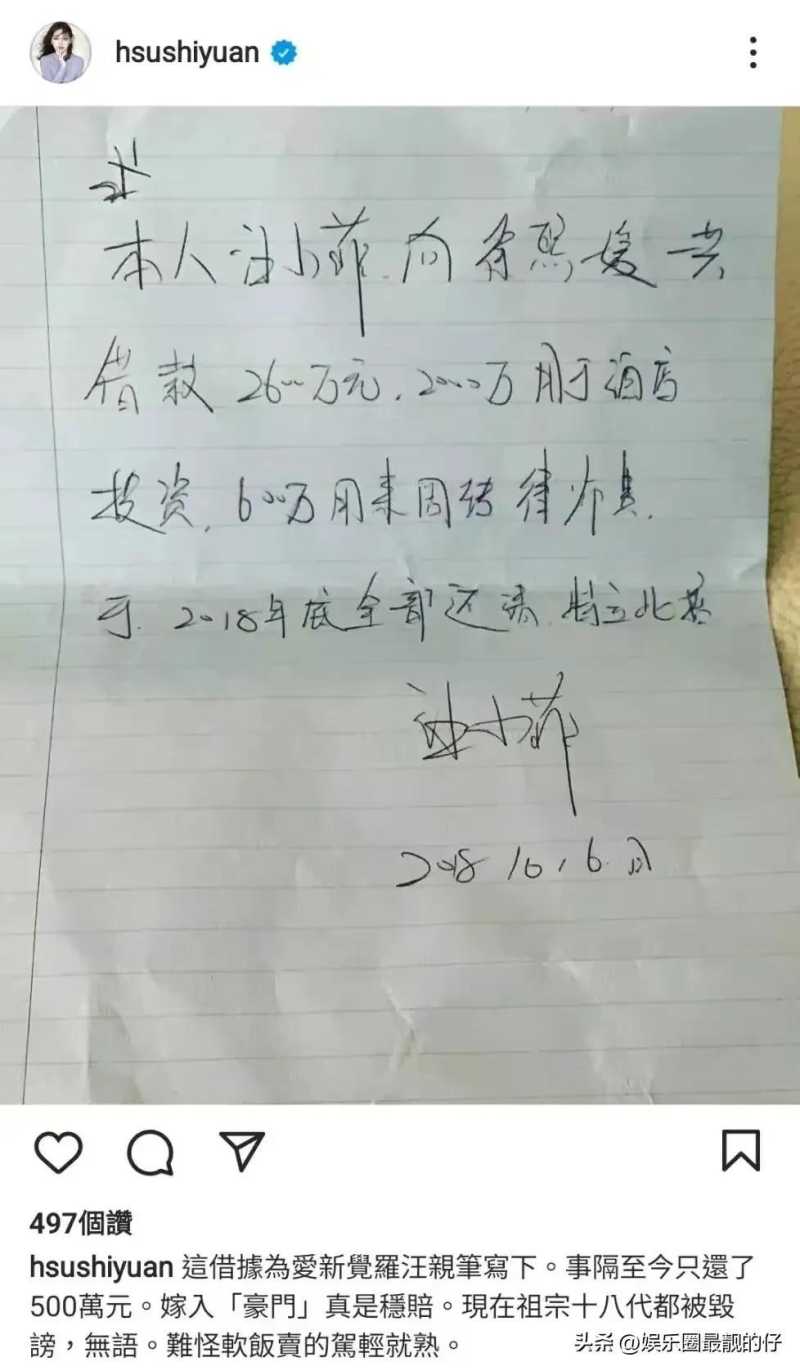 hsushiyuan
本人汪小菲.向徐熙媛共
借款2600万元.2000万用于酒店
投资.600万用来周转律师费.
于.2018年底全部还清.特立此据
汪小菲
2018
497個讚
hsushiyuan 這借據為愛新覺羅汪親筆寫下。事隔至今只還了
500萬元。嫁入「豪門」真是穩賠。現在祖宗十八代都被毀
謗，無語。難怪軟飯賣的駕輕就熟。
头条 @娱乐圈最靓的仔